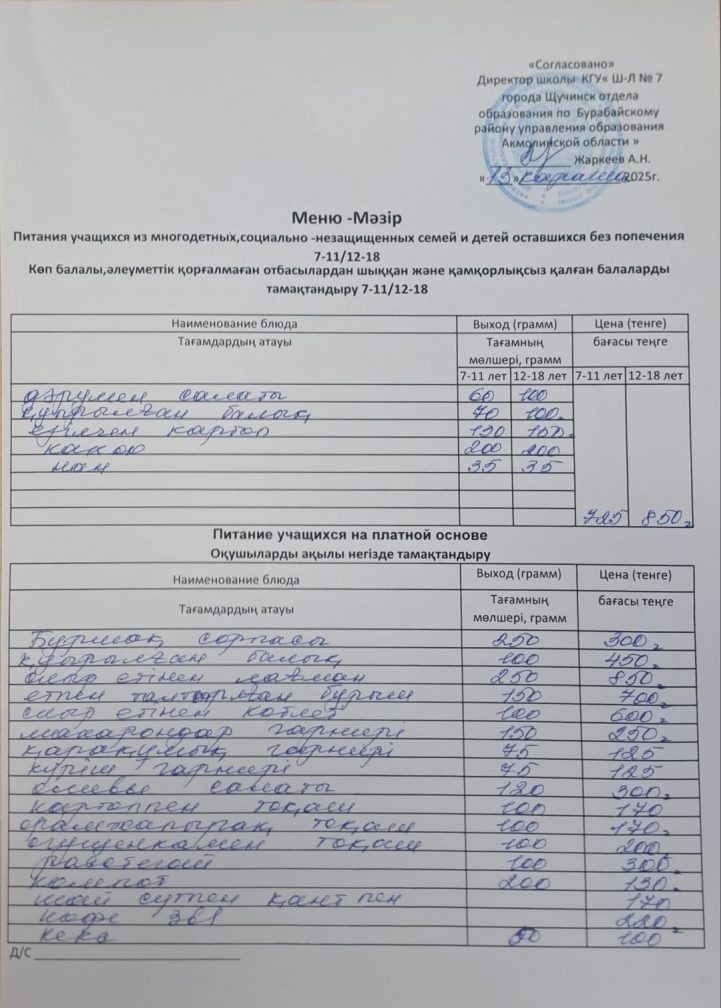 «Согласовано»
Директор школы КГУ« Ш-Л № 7
города Щучинск отдела
образования по Бурабайскому
району управления образования
Акмолинской области »
Жаркеев А.Н.
«13» қараша 2025г.
Меню -Мәзір
Питания учащихся из многодетных,социально -незащищенных семей и детей оставшихся без попечения
7-11/12-18
Көп балалы,әлеуметтік қорғалмаған отбасылардан шыққан және қамқорлықсыз қалған балаларды
тамақтандыру 7-11/12-18
Наименование блюда Выход (грамм) Цена (тенге)
Тағамдардың атауы Тағамның мөлшері, грамм бағасы теңге
7-11 лет 12-18 лет 7-11 лет 12-18 лет
дәрумен салаты 60 100
қуырылған балық 70 100
езілген картоп 130 150
какао 200 200
нан 35 35
725 850
Питание учащихся на платной основе
Оқушыларды ақылы негізде тамақтандыру
Наименование блюда Выход (грамм) Цена (тенге)
Тағамдардың атауы Тағамның мөлшері, грамм бағасы теңге
Бұршақ сорпасы 250 300
қуырылған балық 100 450
сиыр етінен лағман 250 850
етпен толтырылған бұрыш 150 700
сиыр етінен котлет 100 600
макарондар гарнирі 150 250
қарақұмық гарнирі 75 125
күріш гарнирі 75 125
салаты 120 300
картоппен тоқаш 100 170
орамжапырақ тоқаш 100 170
сгущенкамен тоқаш 100 200
100 300
компот 200 130
шай сүтпен қантпен 170
кофе 3в1 220
кекс 50 100
Д/С